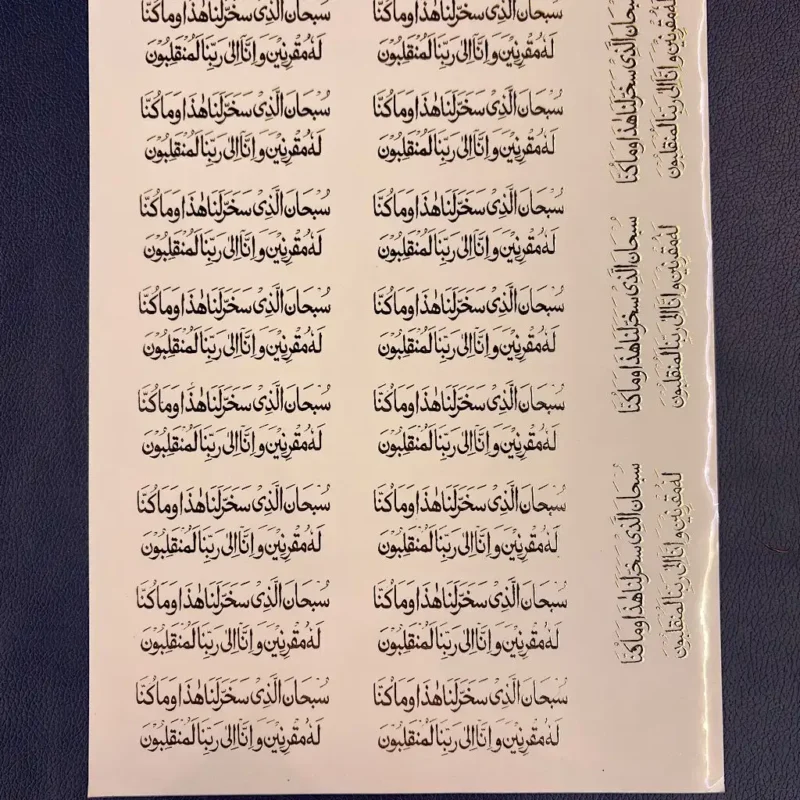 سُبْحَانَ الَّذِیْ سَخَّرَلَنَا هٰذَا وَمَا كُنَّا
لَهٗ مُقْرِنِیْنَ وَ اِنَّا اِلٰی رَبِّنَا لَمُنْقَلِبُوْنَ
سُبْحَانَ الَّذِیْ سَخَّرَلَنَا هٰذَا وَمَا كُنَّا
لَهٗ مُقْرِنِیْنَ وَ اِنَّا اِلٰی رَبِّنَا لَمُنْقَلِبُوْنَ
سُبْحَانَ الَّذِیْ سَخَّرَلَنَا هٰذَا وَمَا كُنَّا
لَهٗ مُقْرِنِیْنَ وَ اِنَّا اِلٰی رَبِّنَا لَمُنْقَلِبُوْنَ
سُبْحَانَ الَّذِیْ سَخَّرَلَنَا هٰذَا وَمَا كُنَّا
لَهٗ مُقْرِنِیْنَ وَ اِنَّا اِلٰی رَبِّنَا لَمُنْقَلِبُوْنَ
سُبْحَانَ الَّذِیْ سَخَّرَلَنَا هٰذَا وَمَا كُنَّا
لَهٗ مُقْرِنِیْنَ وَ اِنَّا اِلٰی رَبِّنَا لَمُنْقَلِبُوْنَ
سُبْحَانَ الَّذِیْ سَخَّرَلَنَا هٰذَا وَمَا كُنَّا
لَهٗ مُقْرِنِیْنَ وَ اِنَّا اِلٰی رَبِّنَا لَمُنْقَلِبُوْنَ
سُبْحَانَ الَّذِیْ سَخَّرَلَنَا هٰذَا وَمَا كُنَّا
لَهٗ مُقْرِنِیْنَ وَ اِنَّا اِلٰی رَبِّنَا لَمُنْقَلِبُوْنَ
سُبْحَانَ الَّذِیْ سَخَّرَلَنَا هٰذَا وَمَا كُنَّا
لَهٗ مُقْرِنِیْنَ وَ اِنَّا اِلٰی رَبِّنَا لَمُنْقَلِبُوْنَ
سُبْحَانَ الَّذِیْ سَخَّرَلَنَا هٰذَا وَمَا كُنَّا
لَهٗ مُقْرِنِیْنَ وَ اِنَّا اِلٰی رَبِّنَا لَمُنْقَلِبُوْنَ
سُبْحَانَ الَّذِیْ سَخَّرَلَنَا هٰذَا وَمَا كُنَّا
لَهٗ مُقْرِنِیْنَ وَ اِنَّا اِلٰی رَبِّنَا لَمُنْقَلِبُوْنَ
سُبْحَانَ الَّذِیْ سَخَّرَلَنَا هٰذَا وَمَا كُنَّا
لَهٗ مُقْرِنِیْنَ وَ اِنَّا اِلٰی رَبِّنَا لَمُنْقَلِبُوْنَ
سُبْحَانَ الَّذِیْ سَخَّرَلَنَا هٰذَا وَمَا كُنَّا
لَهٗ مُقْرِنِیْنَ وَ اِنَّا اِلٰی رَبِّنَا لَمُنْقَلِبُوْنَ
سُبْحَانَ الَّذِیْ سَخَّرَلَنَا هٰذَا وَمَا كُنَّا
لَهٗ مُقْرِنِیْنَ وَ اِنَّا اِلٰی رَبِّنَا لَمُنْقَلِبُوْنَ
سُبْحَانَ الَّذِیْ سَخَّرَلَنَا هٰذَا وَمَا كُنَّا
لَهٗ مُقْرِنِیْنَ وَ اِنَّا اِلٰی رَبِّنَا لَمُنْقَلِبُوْنَ
سُبْحَانَ الَّذِیْ سَخَّرَلَنَا هٰذَا وَمَا كُنَّا
لَهٗ مُقْرِنِیْنَ وَ اِنَّا اِلٰی رَبِّنَا لَمُنْقَلِبُوْنَ
سُبْحَانَ الَّذِیْ سَخَّرَلَنَا هٰذَا وَمَا كُنَّا
لَهٗ مُقْرِنِیْنَ وَ اِنَّا اِلٰی رَبِّنَا لَمُنْقَلِبُوْنَ
سُبْحَانَ الَّذِیْ سَخَّرَلَنَا هٰذَا وَمَا كُنَّا
لَهٗ مُقْرِنِیْنَ وَ اِنَّا اِلٰی رَبِّنَا لَمُنْقَلِبُوْنَ
سُبْحَانَ الَّذِیْ سَخَّرَلَنَا هٰذَا وَمَا كُنَّا
لَهٗ مُقْرِنِیْنَ وَ اِنَّا اِلٰی رَبِّنَا لَمُنْقَلِبُوْنَ
سُبْحَانَ الَّذِیْ سَخَّرَلَنَا هٰذَا وَمَا كُنَّا
لَهٗ مُقْرِنِیْنَ وَ اِنَّا اِلٰی رَبِّنَا لَمُنْقَلِبُوْنَ